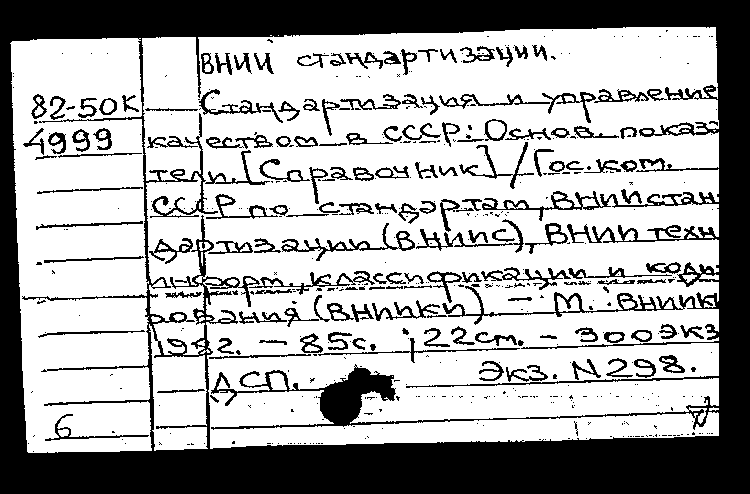 ВНИИ стандартизации.
82-50К Стандартизация и управление
4999 качеством в СССР: Основ. показа
тели. [Справочник] / Гос. ком.
СССР по стандартам, ВНИИ стан-
дартизации (ВНИИС), ВНИИ техн.
информ., классификации и коди-
рования (ВНИИКИ). — М.: ВНИИКИ
1982. — 85с. ; 22см. — 300экз
ДСП. Экз. N298.
6